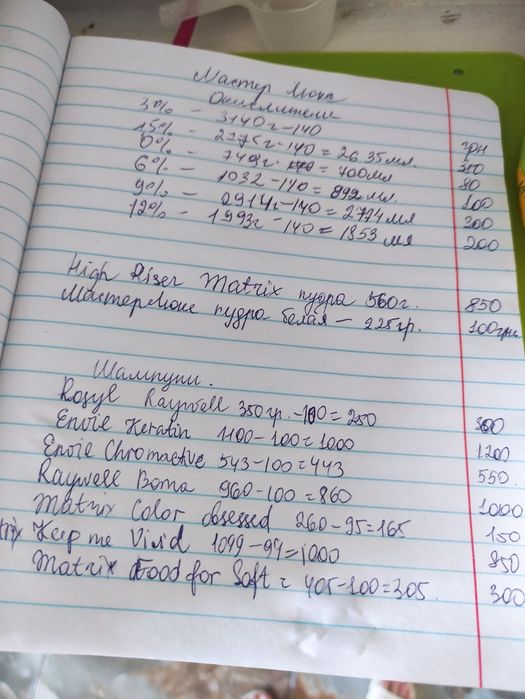 Мастер Люкс
Окислители
грн
3% - 3140г-140
15% - 2775г-140 = 2635 мл.
0% - 749г. = 700мл
80
6% - 1032-140 = 892 мл.
100
9% - 2914г-140 = 2774 мл
300
12% - 1993г - 140 = 1853 мл
200
High Riser Matrix пудра 560г. 850
МастерЛюкс пудра белая - 225гр. 100грн
Шампуни.
Rosyl Raywell 350гр.-100=250 300
Envie Keratin 1100-100=1000 1200
Envie Chromactive 543-100=443 550.
Raywell Boma 960-100=860 1000
Matrix Color obsessed 260-95=165 150
trix Keep me Vivid 1099-99=1000 850
Matrix Food for Soft = 405-100=305. 300